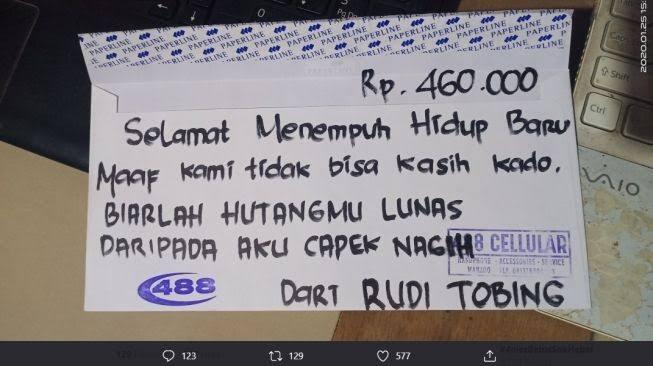 PAPERLINE PAPERLINE PAPERLINE PAPERLINE PAPERLINE
Rp. 460.000
Selamat Menempuh Hidup Baru
Maaf kami tidak bisa kasih kado.
BIARLAH HUTANGMU LUNAS
DARIPADA AKU CAPEK NAGIH
8 CELLULAR
HANDPHONE - ACCESSORIES - SERVICE
MANADO
488
Dari RUDI TOBING
Ctrl
Shift
VAIO
2020.01.25 15:
123 129 577